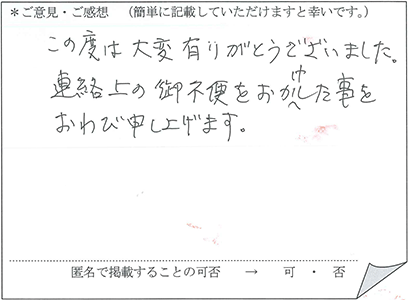 ＊ご意見・ご感想　（簡単に記載していただけますと幸いです。）
この度は大変有りがとうございました。
連絡上の御不便をおかけした事を
おわび申し上げます。
匿名で掲載することの可否　→　可 ・ 否